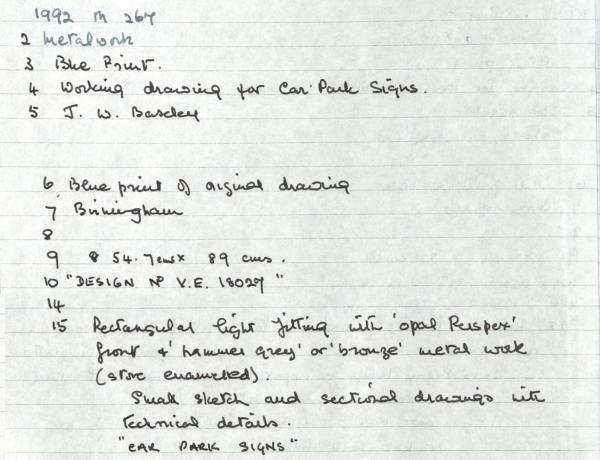 1992 M 267
2 Metalwork
3 Blue Print.
4 Working drawing for Car Park Signs.
5 J. W.
6 Blue print of original drawing
7 Birmingham
8
9 54.7cms x 89 cms.
10 "DESIGN Nº V.E. 18027"
14
15 Rectangular light fitting with 'opal Perspex'
front & 'hammer grey' or 'bronze' metal work
(stove enamelled).
Small sketch and sectional drawings with
technical details.
"CAR PARK SIGNS"